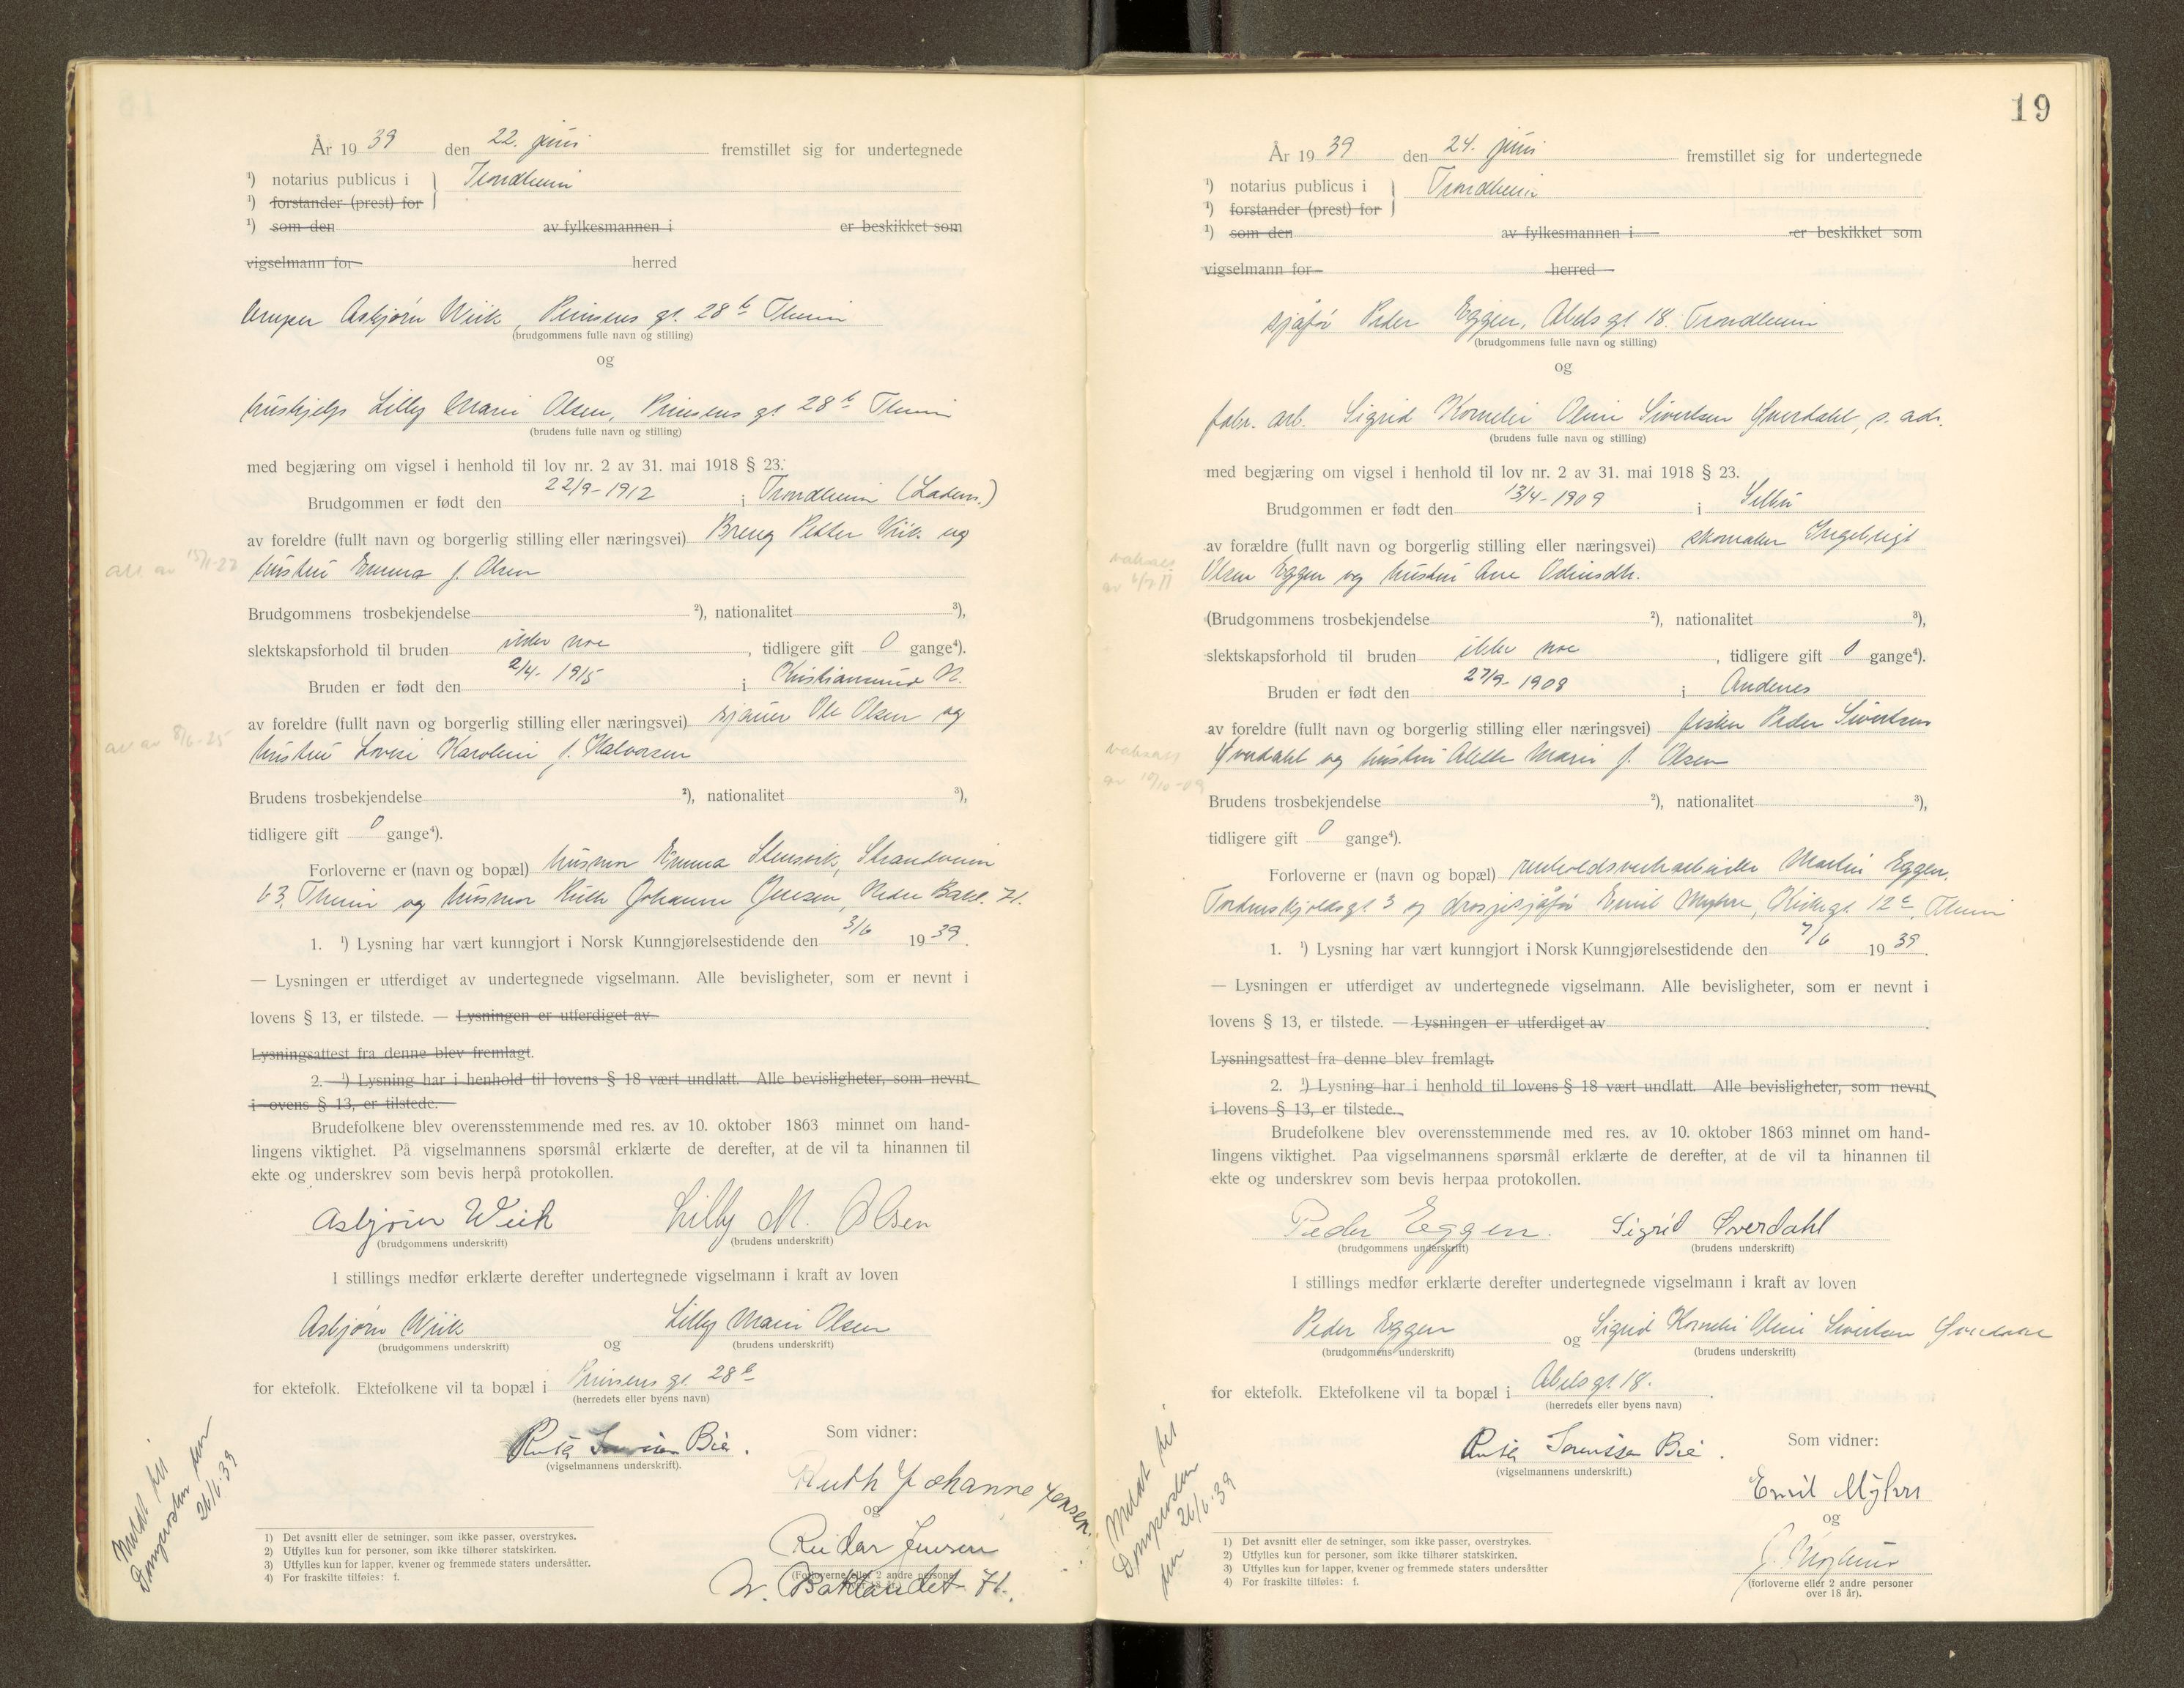 År 19 39 den 22. juni fremstillet sig for undertegnede
¹) notarius publicus i } Trondheim
¹) forstander (prest) for
¹) som den av fylkesmannen i er beskikket som
vigselmann for herred
Asbjørn Wiik, Prinsens gt. 28b Theim
(brudgommens fulle navn og stilling)
og
hushjelp Lilly Marie Olsen, Prinsens gt 28b Theim
(brudens fulle navn og stilling)
med begjæring om vigsel i henhold til lov nr. 2 av 31. mai 1918 § 23.
Brudgommen er født den 22/9-1912 i Trondheim (Ladem.)
av foreldre (fullt navn og borgerlig stilling eller næringsvei) Petter Wiik og
hustru Emma f. Olsen
Brudgommens trosbekjendelse ²), nationalitet ³),
slektskapsforhold til bruden ikke noe, tidligere gift 0 gange⁴).
Bruden er født den 2/4-1915 i Kristiansund N.
av foreldre (fullt navn og borgerlig stilling eller næringsvei) sjauer Ole Olsen og
hustru Lovise Karoline f. Halvorsen
Brudens trosbekjendelse ²), nationalitet ³),
tidligere gift 0 gange⁴).
Forloverne er (navn og bopæl) husmor Emma Stensvik, Strandveien
63, Theim og husmor Ruth Johanne Jensen, Nedre Bakl. 71.
1. ¹) Lysning har vært kunngjort i Norsk Kunngjørelsestidende den 3/6 19 39.
— Lysningen er utferdiget av undertegnede vigselmann. Alle bevisligheter, som er nevnt i
lovens § 13, er tilstede. — Lysningen er utferdiget av
Lysningsattest fra denne blev fremlagt.
2. ¹) Lysning har i henhold til lovens § 18 vært undlatt. Alle bevisligheter, som nevnt
i ovens § 13, er tilstede.
Brudefolkene blev overensstemmende med res. av 10. oktober 1863 minnet om hand-
lingens viktighet. På vigselmannens spørsmål erklærte de derefter, at de vil ta hinannen til
ekte og underskrev som bevis herpå protokollen.
Asbjørn Wiik Lilly M. Olsen
(brudgommens underskrift) (brudens underskrift)
I stillings medfør erklærte derefter undertegnede vigselmann i kraft av loven
Asbjørn Wiik og Lilly Marie Olsen
(brudgommens underskrift) (brudens underskrift)
for ektefolk. Ektefolkene vil ta bopæl i Prinsens gt. 28b
(herredets eller byens navn)
Som vidner:
(vigselmannens underskrift).
Ruth Johanne Jensen.
og
Reidar Jensen
(Forloverne eller 2 andre personer
over 18 år).
N. Baklandet 71.
Meldt til
Domprosten den
26/6.39
1) Det avsnitt eller de setninger, som ikke passer, overstrykes.
2) Utfylles kun for personer, som ikke tilhører statskirken.
3) Utfylles kun for lapper, kvener og fremmede staters undersåtter.
4) For fraskilte tilføies: f.
19
År 19 39 den 24. juni fremstillet sig for undertegnede
¹) notarius publicus i } Trondheim
¹) forstander (prest) for
¹) som den av fylkesmannen i er beskikket som
vigselmann for herred
sjåfør Peder Eggen, Abels gt 18. Trondheim
(brudgommens fulle navn og stilling)
og
fabr. arb. Sigrid Kornelie Oline Sivertsen Øverdahl, s. adr.
(brudens fulle navn og stilling)
med begjæring om vigsel i henhold til lov nr. 2 av 31. mai 1918 § 23.
Brudgommen er født den 13/4-1909 i Selbu
av forældre (fullt navn og borgerlig stilling eller næringsvei) skomaker Ingebrigt
Olsen Eggen og hustru Ane Odinsdtr.
(Brudgommens trosbekjendelse ²), nationalitet ³),
slektskapsforhold til bruden ikke noe, tidligere gift 0 gange⁴).
Bruden er født den 27/9-1908 i Andenes
av foreldre (fullt navn og borgerlig stilling eller næringsvei) fisker Peder Sivertsen
Øverdahl og hustru Alette Marie f. Olsen
Brudens trosbekjendelse ²), nationalitet ³),
tidligere gift 0 gange⁴).
Forloverne er (navn og bopæl) renholdsverkarbeider Martin Eggen,
Tordenskjoldsgt 3 og drosjesjåfør Emil Myhre, Kirkegt. 12c, Theim
1. ¹) Lysning har vært kunngjort i Norsk Kunngjørelsestidende den 7/6 19 39.
— Lysningen er utferdiget av undertegnede vigselmann. Alle bevisligheter, som er nevnt i
lovens § 13, er tilstede. — Lysningen er utferdiget av
Lysningsattest fra denne blev fremlagt.
2. ¹) Lysning har i henhold til lovens § 18 vært undlatt. Alle bevisligheter, som nevnt
i lovens § 13, er tilstede.
Brudefolkene blev overensstemmende med res. av 10. oktober 1863 minnet om hand-
lingens viktighet. Paa vigselmannens spørsmål erklærte de derefter, at de vil ta hinannen til
ekte og underskrev som bevis herpaa protokollen.
Peder Eggen. Sigrid Øverdahl
(brudgommens underskrift) (brudens underskrift)
I stillings medfør erklærte derefter undertegnede vigselmann i kraft av loven
Peder Eggen og Sigrid Kornelie Oline Sivertsen Øverdahl
(brudgommens underskrift) (brudens underskrift)
for ektefolk. Ektefolkene vil ta bopæl i Abels gt 18.
(herredets eller byens navn)
Som vidner:
(vigselmannens underskrift.)
Emil Myhre
og
(forloverne eller 2 andre personer
over 18 år).
Meldt til
Domprosten
den 26/6.39
1) Det avsnitt eller de setninger, som ikke passer, overstrykes.
2) Utfylles kun for personer, som ikke tilhører statskirken.
3) Utfylles kun for lapper, kvener og fremmede staters undersåtter
4) For fraskilte tilføies: f.